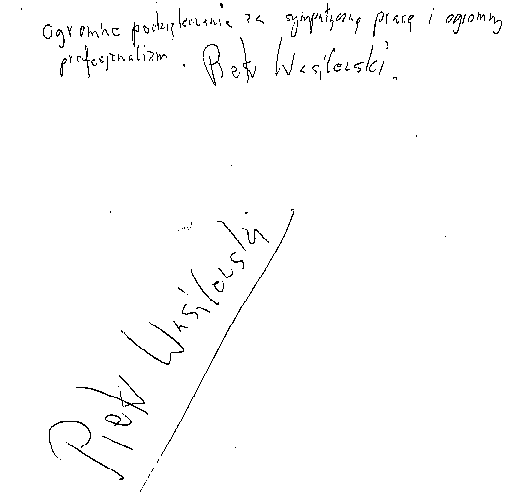 Ogromne podziękowania za sympatyczną pracę i ogromny
profesjonalizm. Piotr Wasilewski.
Piotr Wasilewski